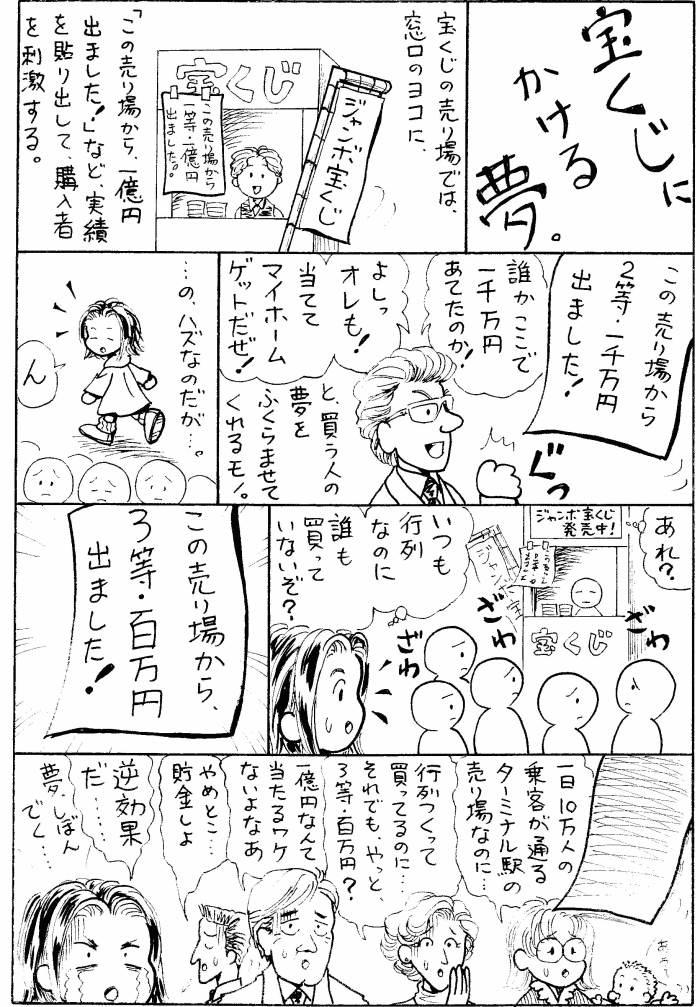 宝くじに
かける
夢。
宝くじの売り場では、
窓口のヨコに、
宝くじ
ジャンボ宝くじ
この売り場から
一等・一億円
出ました。
「この売り場から、一億円
出ました!」など、実績
を貼り出して、購入者
を刺激する。
この売り場から
2等・一千万円
出ました!
誰かここで
一千万円
あてたのか!
よしっ
オレも!
当てて
マイホーム
ゲットだぜ!
と、買う人の
夢を
ふくらませて
くれるモノ。
ぐっ
…の、ハズなのだが…。
ん
あれ?
ジャンボ宝くじ
発売中!
宝くじ
ざわ
ざわ
ざわ
いつも
行列
なのに
誰も
買って
いないぞ?
この売り場から、
3等・百万円
出ました!
一日10万人の
乗客が通る
ターミナル駅の
売り場なのに…
行列つくって
買ってるのに…
それでも、やっと、
3等・百万円?
一億円なんて
当たるワケ
ないよなあ
やめとこ…
貯金しよ
逆効果
だ……
夢、しぼん
でく…